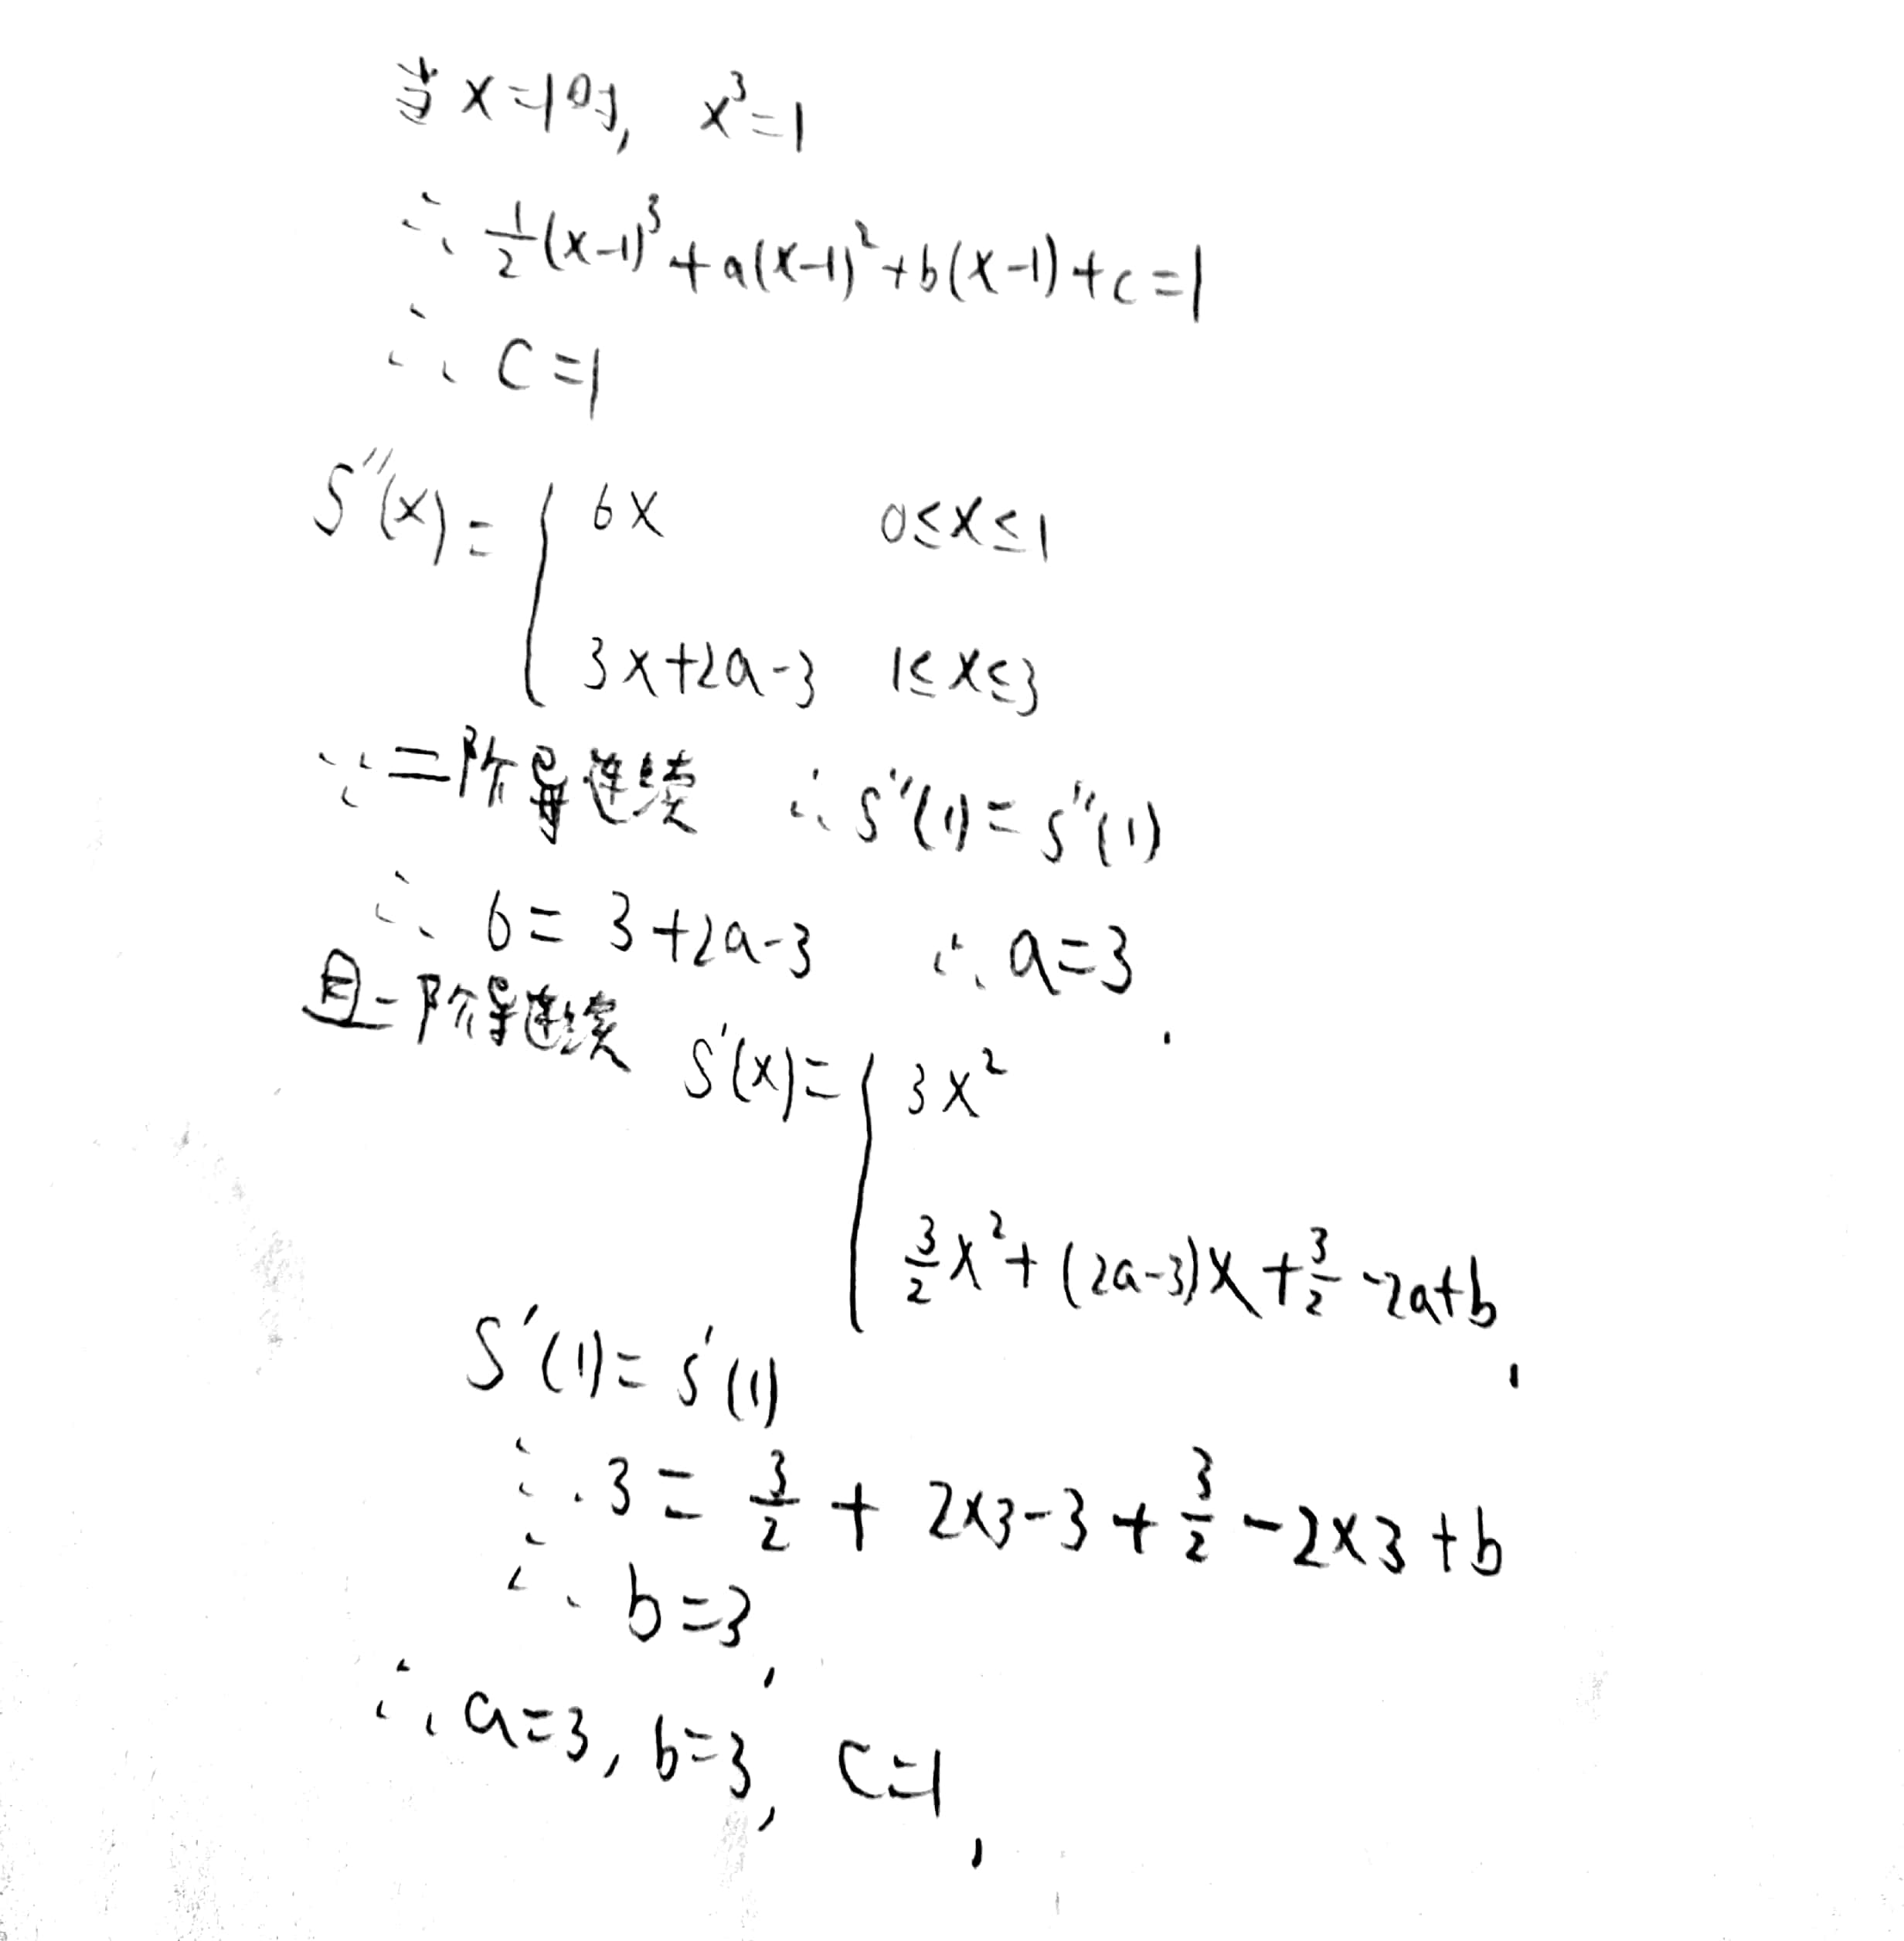 当x=1时, x³=1
∴ 1/2(x-1)³+a(x-1)²+b(x-1)+c=1
∴ C=1
S''(x)= { 6x 0≤x≤1
3x+2a-3 1≤x≤3
∵二阶导连续 ∴S''(1)=S''(1)
∴ 6=3+2a-3 ∴a=3.
且一阶导连续 S'(x)= { 3x²
3/2x²+(2a-3)x+3/2-2a+b,
S'(1)=S'(1)
∴ 3=3/2+2×3-3+3/2-2×3+b
∴ b=3,
∴ a=3, b=3, c=1,